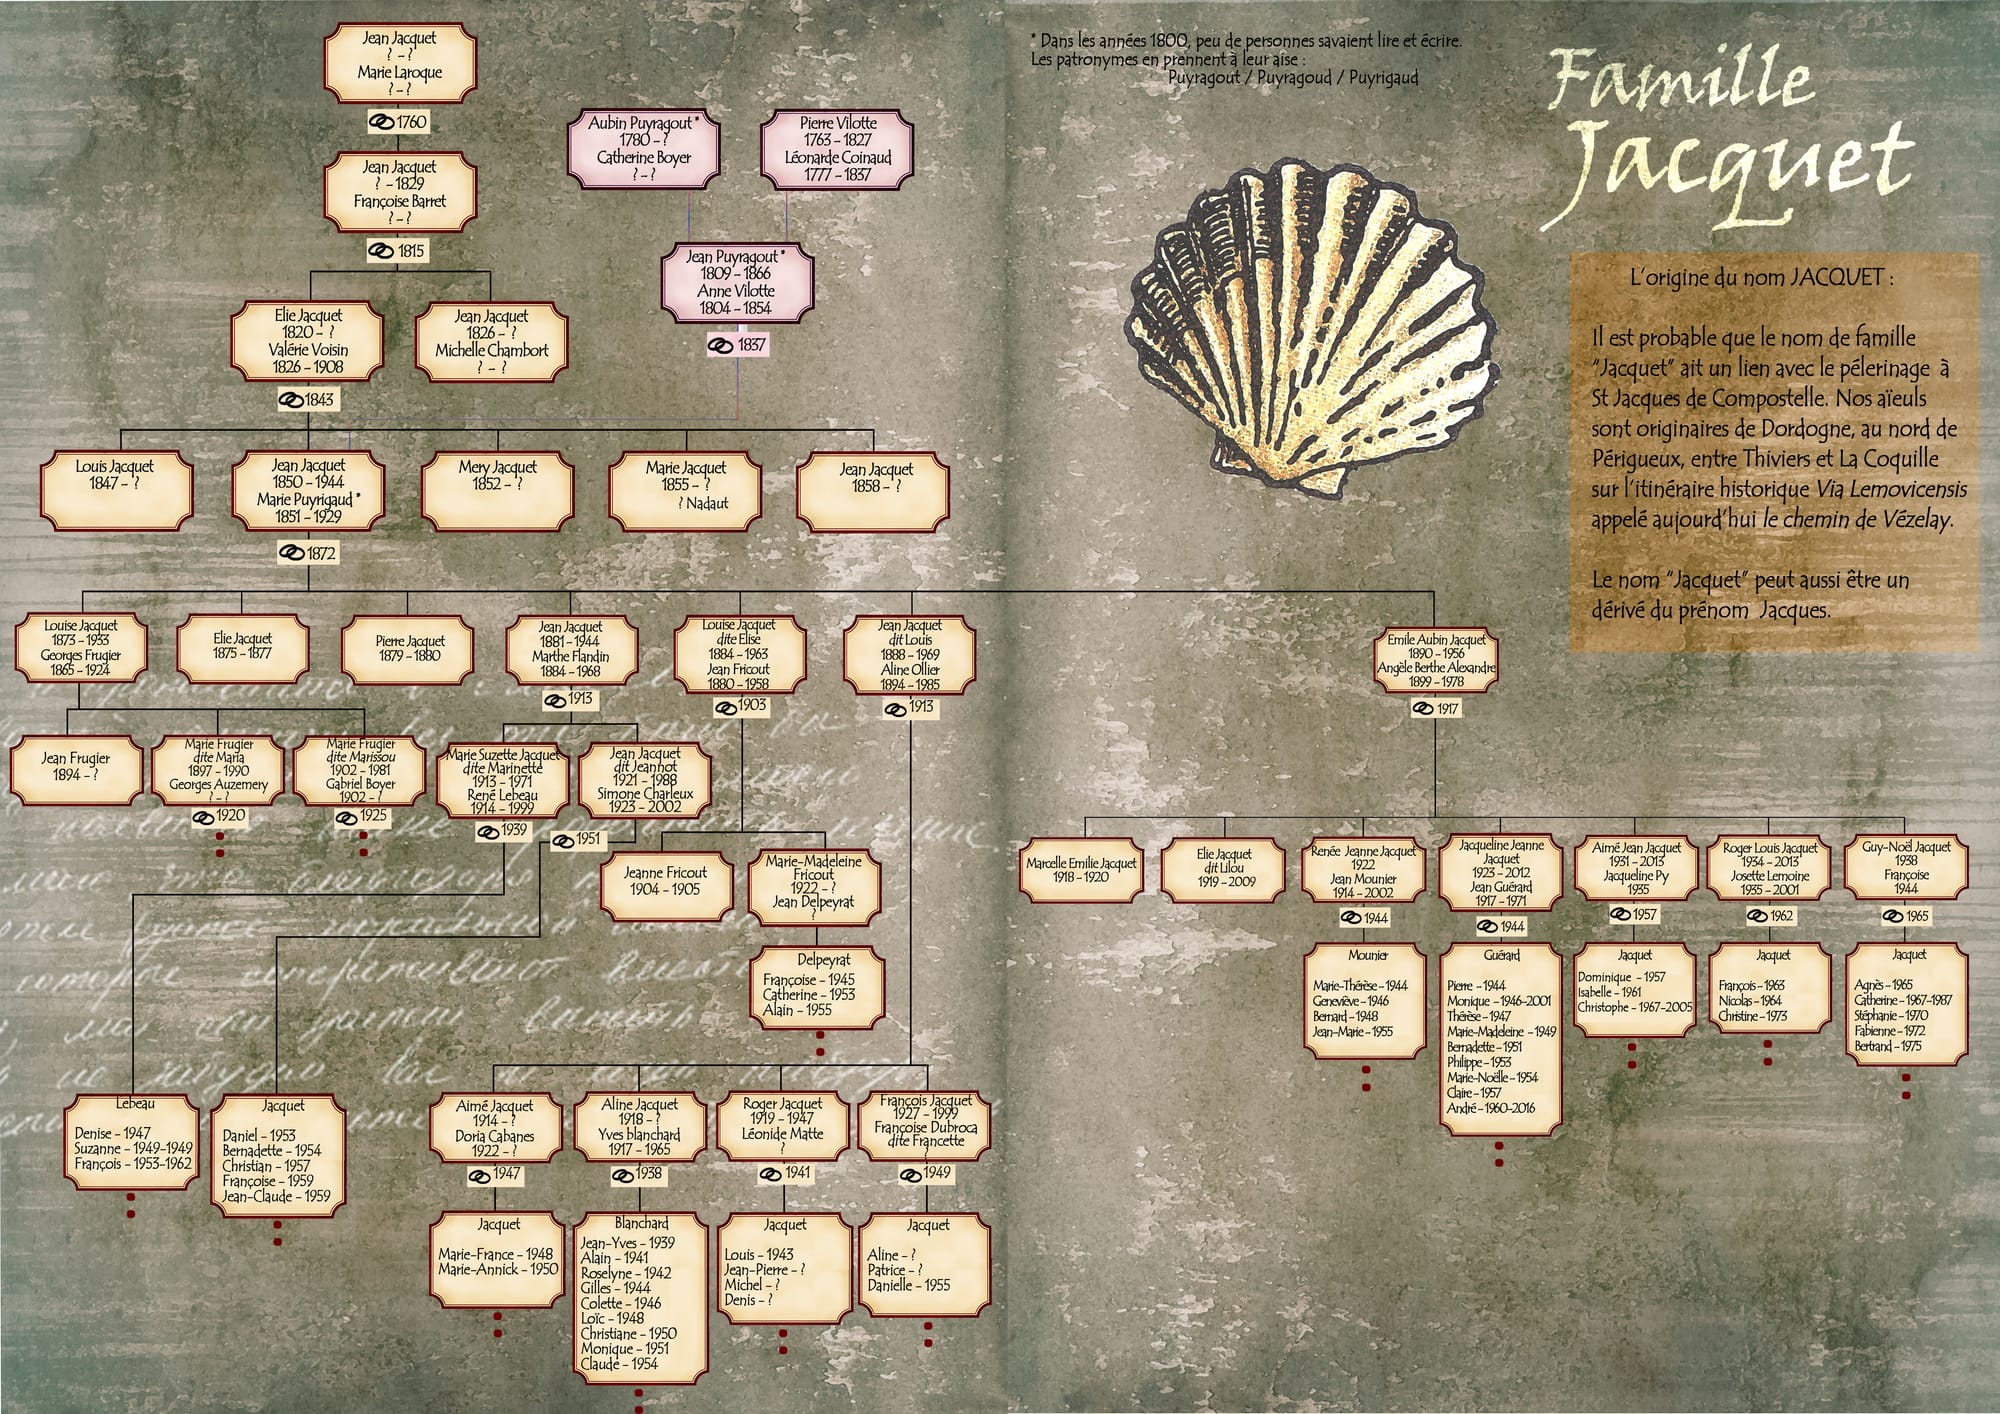 Jean Jacquet
? - ?
Marie Laroque
? - ?
1760
Jean Jacquet
? - 1829
Françoise Barret
? - ?
1815
Aubin Puyragout *
1780 - ?
Catherine Boyer
? - ?
Pierre Vilotte
1763 - 1827
Léonarde Coinaud
1777 - 1837
Jean Puyragout *
1809 - 1866
Anne Vilotte
1804 - 1854
1837
* Dans les années 1800, peu de personnes savaient lire et écrire.
Les patronymes en prennent à leur aise :
Puyragout / Puyragoud / Puyrigaud
Famille
Jacquet
L'origine du nom JACQUET :
Il est probable que le nom de famille
"Jacquet" ait un lien avec le pélerinage à
St Jacques de Compostelle. Nos aïeuls
sont originaires de Dordogne, au nord de
Périgueux, entre Thiviers et La Coquille
sur l'itinéraire historique Via Lemovicensis
appelé aujourd'hui le chemin de Vézelay.
Le nom "Jacquet" peut aussi être un
dérivé du prénom Jacques.
Elie Jacquet
1820 - ?
Valérie Voisin
1826 - 1908
1843
Jean Jacquet
1826 - ?
Michelle Chambort
? - ?
Louis Jacquet
1847 - ?
Jean Jacquet
1850 - 1944
Marie Puyrigaud *
1851 - 1929
1872
Mery Jacquet
1852 - ?
Marie Jacquet
1855 - ?
? Nadaut
Jean Jacquet
1858 - ?
Louise Jacquet
1873 - 1933
Georges Frugier
1865 - 1924
Elie Jacquet
1875 - 1877
Pierre Jacquet
1879 - 1880
Jean Jacquet
1881 - 1944
Marthe Flandin
1884 - 1968
1913
Louise Jacquet
dite Elise
1884 - 1963
Jean Fricout
1880 - 1958
1903
Jean Jacquet
dit Louis
1888 - 1969
Aline Ollier
1894 - 1985
1913
Emile Aubin Jacquet
1890 - 1956
Angèle Berthe Alexandre
1899 - 1978
1917
Jean Frugier
1894 - ?
Marie Frugier
dite Maria
1897 - 1990
Georges Auzemery
? - ?
1920
Marie Frugier
dite Marissou
1902 - 1981
Gabriel Boyer
1902 - ?
1925
Marie Suzette Jacquet
dite Marinette
1913 - 1971
René Lebeau
1914 - 1999
1939
Jean Jacquet
dit Jeanhot
1921 - 1988
Simone Charleux
1923 - 2002
1951
Jeanne Fricout
1904 - 1905
Marie-Madeleine
Fricout
1922 - ?
Jean Delpeyrat
?
Delpeyrat
Françoise - 1945
Catherine - 1953
Alain - 1955
Marcelle Emilie Jacquet
1918 - 1920
Elie Jacquet
dit Lilou
1919 - 2009
Renée Jeanne Jacquet
1922
Jean Mounier
1914 - 2002
1944
Jacqueline Jeanne
Jacquet
1923 - 2012
Jean Guérard
1917 - 1971
1944
Aimé Jean Jacquet
1931 - 2013
Jacqueline Py
1935
1957
Roger Louis Jacquet
1934 - 2013
Josette Lemoine
1935 - 2001
1962
Guy-Noël Jacquet
1938
Françoise
1944
1965
Mounier
Marie-Thérèse - 1944
Geneviève - 1946
Bernard - 1948
Jean-Marie - 1955
Guérard
Pierre - 1944
Monique - 1946-2001
Thérèse - 1947
Marie-Madeleine - 1949
Bernadette - 1951
Philippe - 1953
Marie-Noëlle - 1954
Claire - 1957
André - 1960-2016
Jacquet
Dominique - 1957
Isabelle - 1961
Christophe - 1967-2005
Jacquet
François - 1963
Nicolas - 1964
Christine - 1973
Jacquet
Agnès - 1965
Catherine - 1967-1987
Stéphanie - 1970
Fabienne - 1972
Bertrand - 1975
Lebeau
Denise - 1947
Suzanne - 1949-1949
François - 1953-1962
Jacquet
Daniel - 1953
Bernadette - 1954
Christian - 1957
Françoise - 1959
Jean-Claude - 1959
Aimé Jacquet
1914 - ?
Doria Cabanes
1922 - ?
1947
Aline Jacquet
1918 - ?
Yves blanchard
1917 - 1965
1938
Roger Jacquet
1919 - 1947
Léonide Matte
?
1941
François Jacquet
1927 - 1999
Françoise Dubroca
dite Francette
?
1949
Jacquet
Marie-France - 1948
Marie-Annick - 1950
Blanchard
Jean-Yves - 1939
Alain - 1941
Roselyne - 1942
Gilles - 1944
Colette - 1946
Loïc - 1948
Christiane - 1950
Monique - 1951
Claude - 1954
Jacquet
Louis - 1943
Jean-Pierre - ?
Michel - ?
Denis - ?
Jacquet
Aline - ?
Patrice - ?
Danielle - 1955